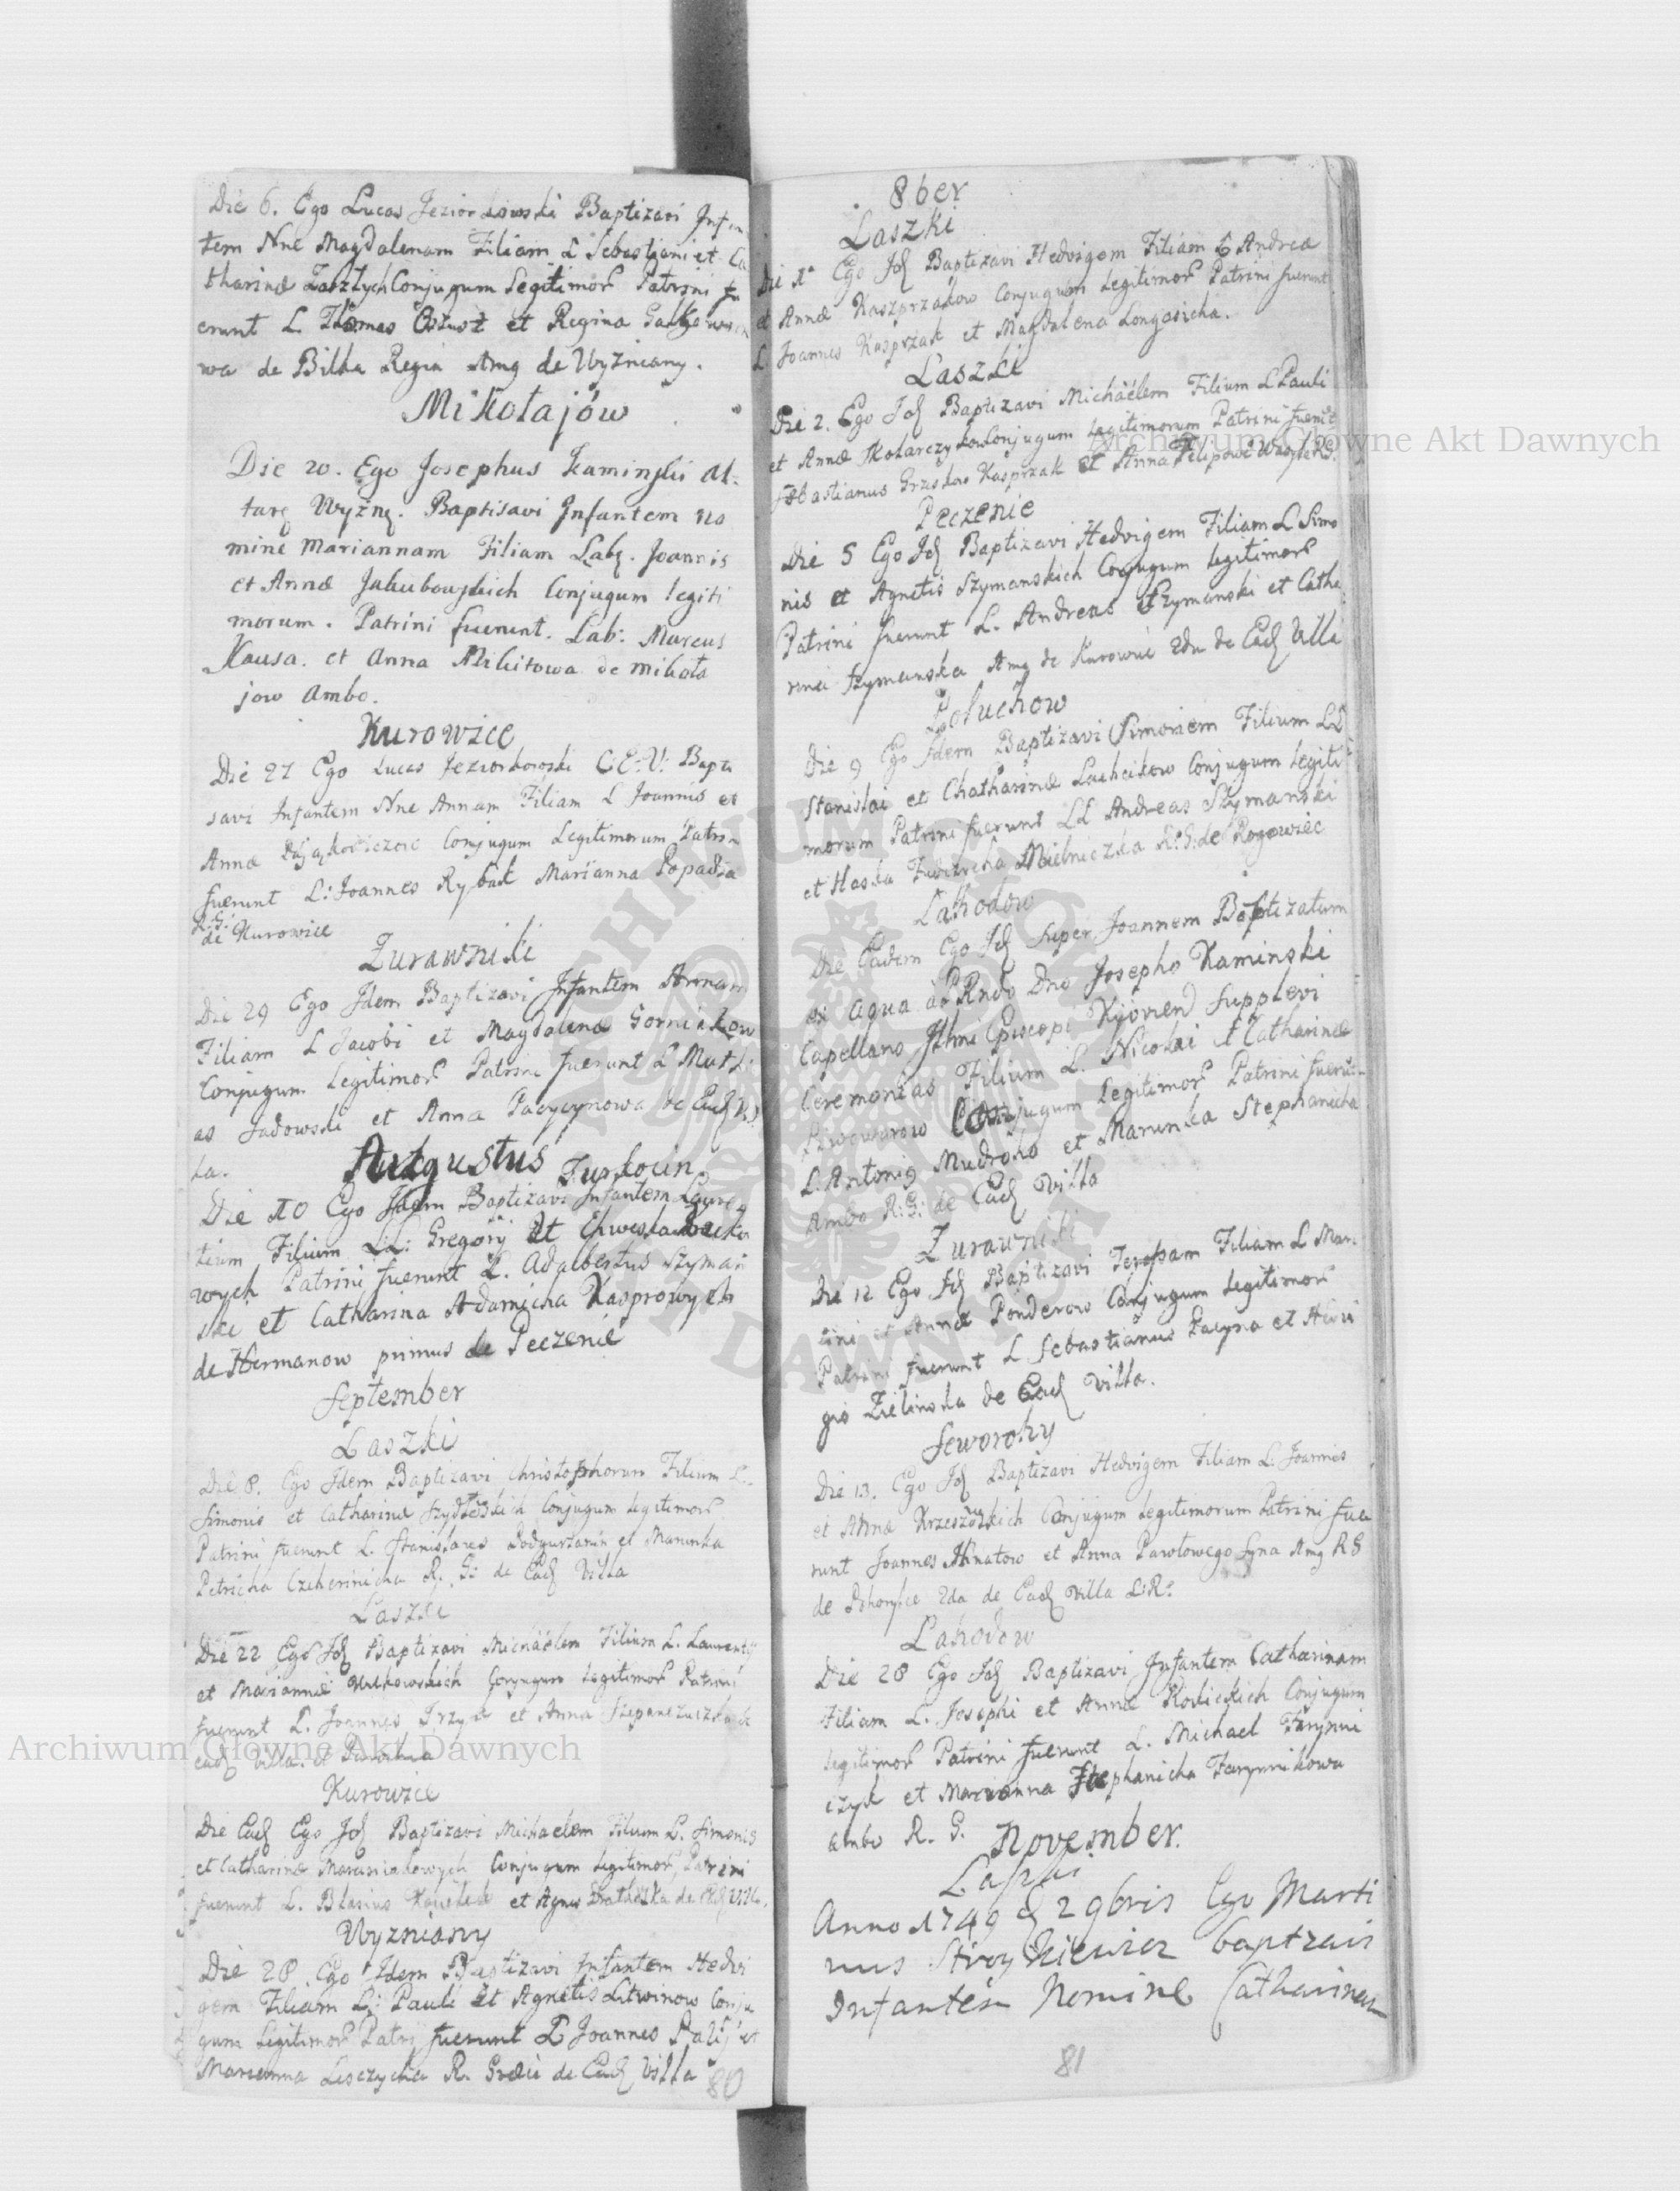 Die 6. Ego Lucas Jeziorkowski Baptizavi Infan
tem Nne Magdalenam Filiam L Sebastiani et Ca
tharinæ Conjugum Legitimor Patrini fu
erunt L. Thomas et Regina
wa de Bilka Regia Amg de Wyzniany.
Mikołajów
Die 20. Ego Josephus Kaminski Al-
tarę Wyżnę. Baptisavi Infantem no
mine Mariannam Filiam Labę. Joannis
et Annæ Jakubowskich Conjugum legiti
morum. Patrini fuerunt. Lab: Marcus
Kausa. et Anna Mikitowa de Mikoła
jow Ambo.
Kurowice
Die 27 Ego Lucas Jeziorkowski C.E.V: Bapti
savi Infantem Nne Annam Filiam L Joannis et
Annæ Conjugum Legitimorum Patrin
fuerunt L: Joannes Rybak Marianna Popadia
R.G:
de Kurowice
Zurawniki
Die 29 Ego Idem Baptizavi Infantem Annam
Filiam L Jacobi et Magdalenæ Gorniakow
Conjugum Legitimor Patrini fuerunt L Mathi
as Sadowski et Anna Pacyynowa de Ead Vil
la.
Augustus Turkocin
Die 10 Ego Idem Baptizavi Infantem Lauren
tium Filium LL: Gregory Et
wych Patrini fuerunt L. Adalbertus Szyman
ski et Catharina Adamicha Kasprowych
de Hermanow primus de Peczenie
September
Laszki
Die 8. Ego Idem Baptizavi Christophorum Filium L.
Simonis et Catharinæ Conjugum Legitimor
Patrini fuerunt L. Stanislaus Podgurzanin et Marunka
Petricha Czcherinicha R. G: de Ead Villa
Laszki
Die 22 Ego Id Baptizavi Michäelem Filium L. Laurentÿ
et Mariannæ Conjugum Legitimor Patrini
fuerunt L. Joannes et Anna de
ead Villa. et
Kurowice
Die Ead Ego Id Baptizavi Michaelem Filium L. Simonis
et Catharinæ Marusiakowych Conjugum Legitimor, Patrini
fuerunt L. Blasius et Agnes de Ead Villa.
Wyzniany
Die 28 Ego Idem Baptizavi Infantem Hedvi
gem Filiam L: Pauli Et Agnetis Litwinow Conju
gum Legitimor Patri fuerunt L Joannes et
Marianna Leszczycha R. Græci de Ead Villa
80
8ber
Laszki
Die 1ª Ego Id Baptizavi Hedvigem Filiam L Andreæ
et Annæ Kaszprzakow Conjugum Legitimor Patrini fuerunt
L Joannes Kasprzak et Magdalena Longosicha.
Laszki
Die 2. Ego Id Baptizavi Michäelem Filium L Pauli
et Annæ Conjugum Legitimorum Patrini fuerut
Sebastianus Kasprzak et Anna
Peczenie
Die 5 Ego Id Baptizavi Hedvigem Filiam L Simo
nis et Agnetis Szymanskich Conjugum Legitimor
Patrini fuerunt L. Andreas Szymanski et Catha
rina Szymanska Amg de Kurowice 2da de Ead Villa
Poluchow
Die 9 Ego Idem Baptizavi Simonem Filium LL
Stanislai et Chatharinæ Conjugum Legiti
morum Patrini fuerunt LL Andreas Szymanski
et Haska Mielniczka R.G: de Rogowiec
Lahodow
Die Eadem Ego Id Super Joannem Baptizatum
ex aqua a Rndo Dno Josepho Kaminski
Capellano Illmi Episcopi Kÿovien Supplevi
Ceremonias Filium L. Nicolai Et Catharinæ
Piwowarow Conjugum Legitimor Patrini fuerut
L. Antonig Mudroho et Marunka Stephanicha
Ambo R:G: de Ead Villa
Zurawniki
Die 12 Ego Id Baptizavi Teressam Filiam L Mar
tini et Annæ Ponderow Conjugum Legitimor
Patrini fuerunt L Sebastianus Pacyna et
Zielinska de Ead Villa.
Seworohy
Die 13. Ego Id Baptizavi Hedvigem Filiam L. Joannis
et Annæ Conjugum Legitimorum Patrini fue
runt Joannes Hnatow et Anna Pawlowego Syna Amg RG
de 2da de Ead Villa L:R:
Lahodow
Die 28 Ego Id Baptizavi Infantem Catharinam
Filiam L. Josephi et Annæ Rosickich Conjugum
Legitimor Patrini fuerunt L. Michael Farynni
czyk et Marianna Stephanicha Farynnikowa
ambo R. G.
November.
Laszki
Anno 1749 d 2 9bris Ego Marti
nus baptzavi
Infantem Nomine Catharinam
81
Archiwum Główne Akt Dawnych
Archiwum Główne Akt Dawnych
ARCHIWUM GŁÓWNE AKT DAWNYCH